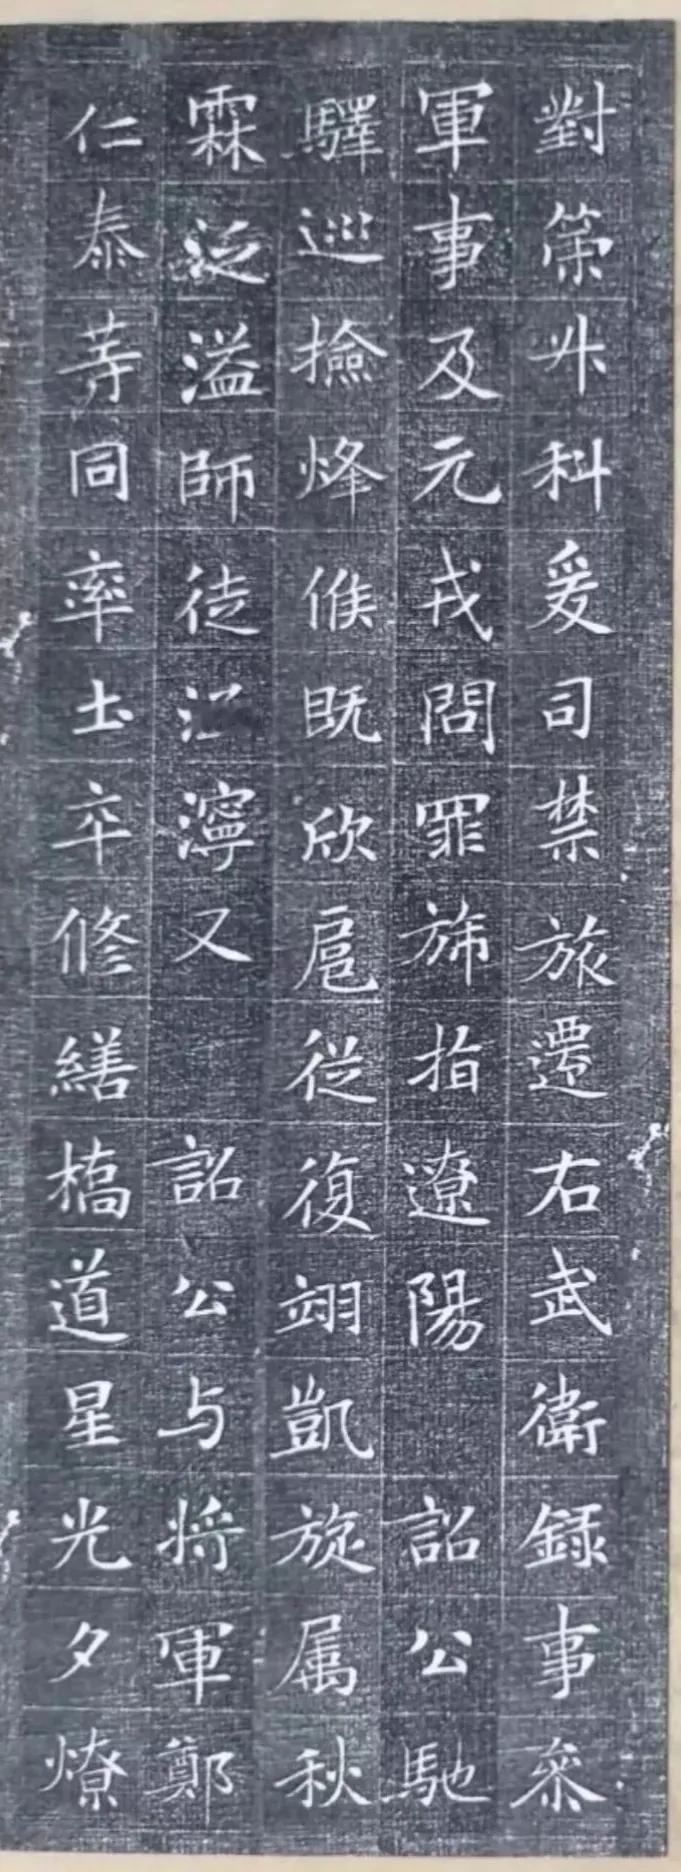 對策升科爰司禁旅遷右武衛録事叅
軍事及元戎問罪斾指遼陽 詔公馳
驛巡撿烽候既欣扈從復翊凱旋属秋
霖泛溢師徒濘又 詔公与将軍鄭
仁泰等同率士卒修繕橋道星光夕燎